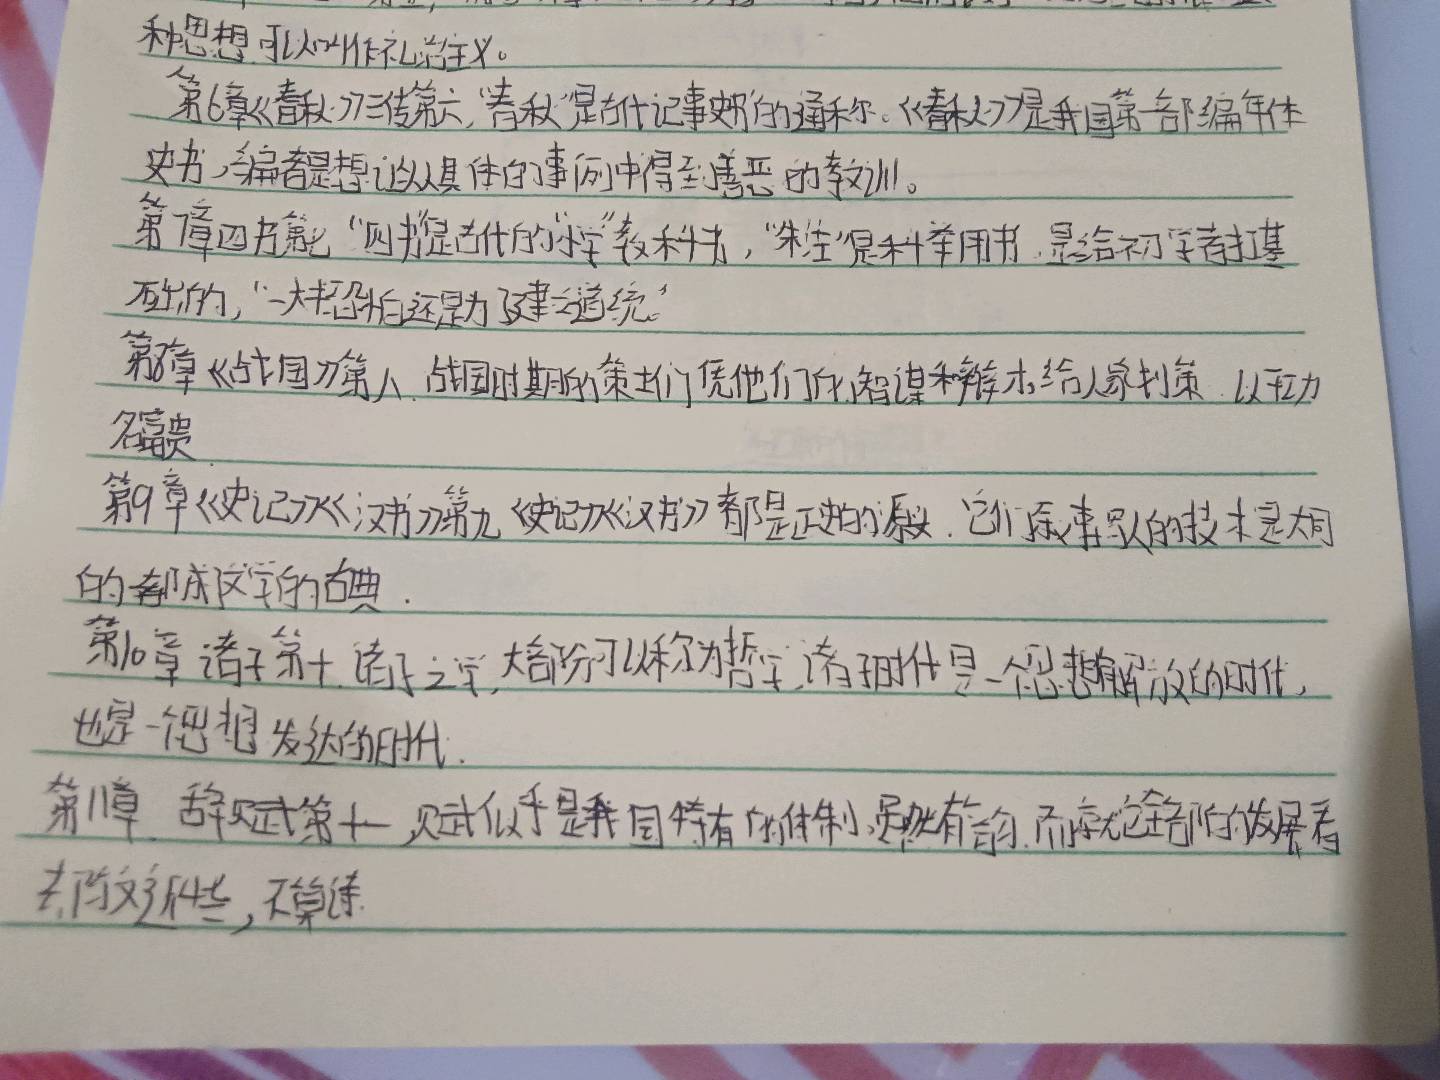 种思想可以叫作礼治主义。
第6章《春秋》三传第六,"春秋"是古代记事史书的通称。《春秋》是我国第一部编年体
史书,编者是想让以从具体的事例中得到善恶的教训。
第7章四书第七"四书"是古代的"小学"教科书,"朱注"是科举用书.是给初学者打基
础的,"一大半恐怕还是为了建立道统。"
第8章《战国》第八.战国时期的策士们凭他们的智谋和辩才给人家划策.以取功
名富贵
第9章《史记》《汉书》第九《史记》《汉书》都是正史的源头.它们叙事写人的技术是大同
的都成文学的古典.
第10章诸子第十.诸子之学,大部分可以称为哲学,诸子时代是一个思想解放的时代,
也是一个思想发达的时代.
第11章.辞赋第十一,赋似乎是我国特有的体制,虽然有韵.而就它全部的发展看
去,与文近些,不算诗.